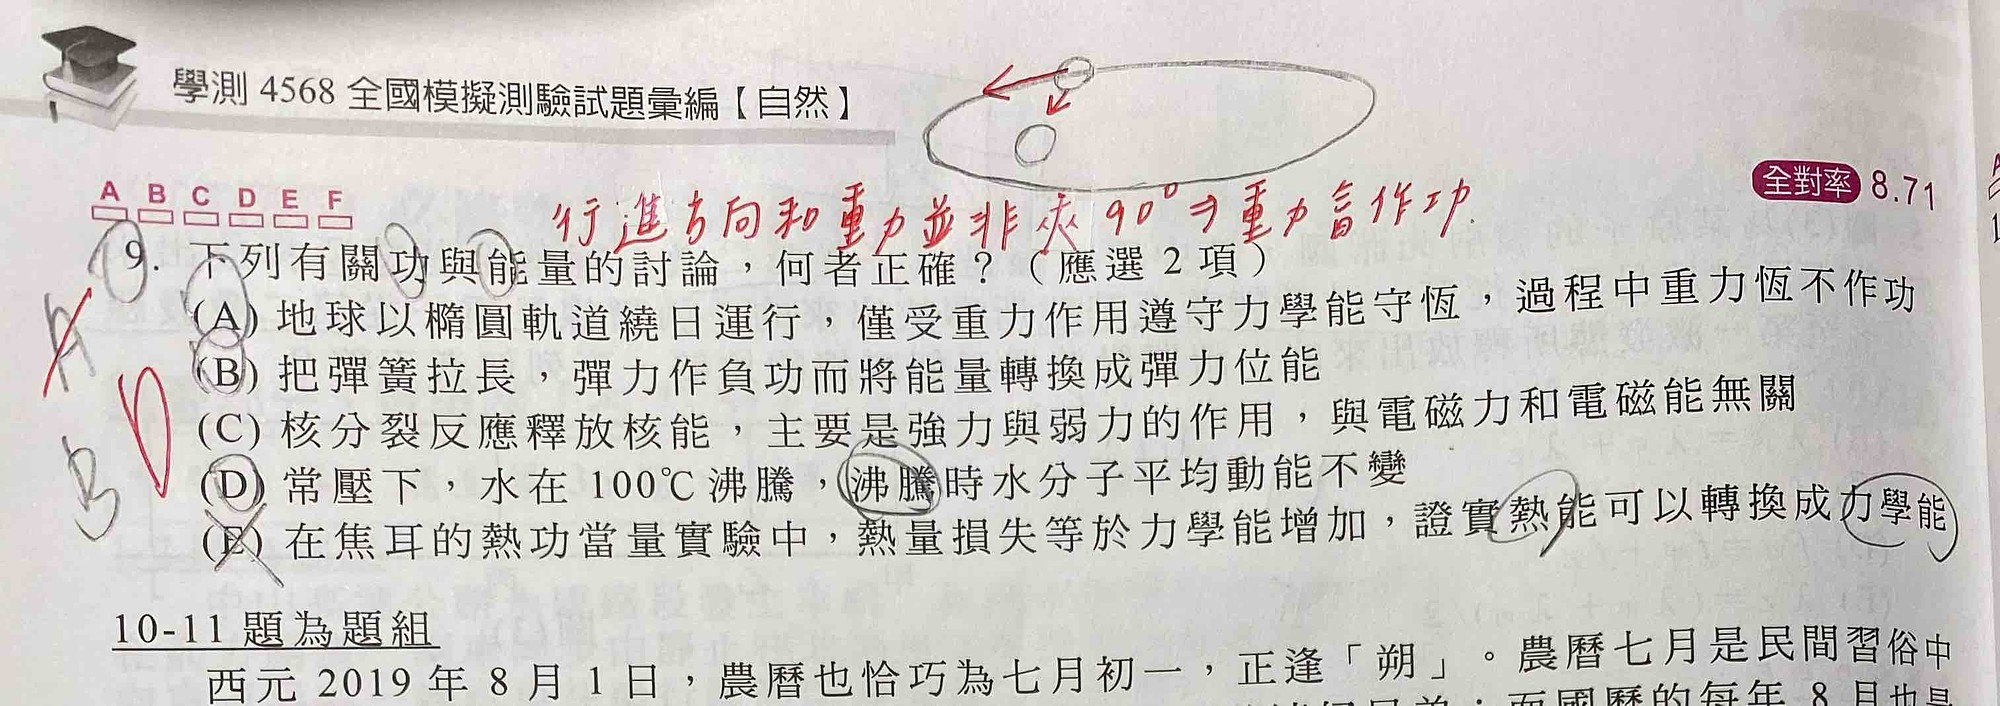 學測 4568 全國模擬測驗試題彙編【自然】
全對率 8.71
A B C D E F
行進方向和重力並非夾90°⇒重力會作功
9. 下列有關功與能量的討論，何者正確？（應選 2 項）
(A) 地球以橢圓軌道繞日運行，僅受重力作用遵守力學能守恆，過程中重力恆不作功
(B) 把彈簧拉長，彈力作負功而將能量轉換成彈力位能
(C) 核分裂反應釋放核能，主要是強力與弱力的作用，與電磁力和電磁能無關
(D) 常壓下，水在 100℃ 沸騰，沸騰時水分子平均動能不變
(E) 在焦耳的熱功當量實驗中，熱量損失等於力學能增加，證實熱能可以轉換成力學能
A
B
D
10-11 題為題組
西元 2019 年 8 月 1 日，農曆也恰巧為七月初一，正逢「朔」。農曆七月是民間習俗中
而國曆的每年 8 月也是